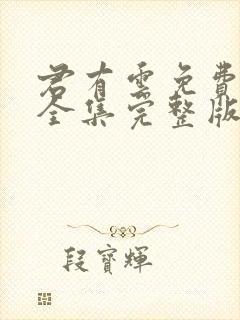 君有云免费
全集完整版
段寳輝